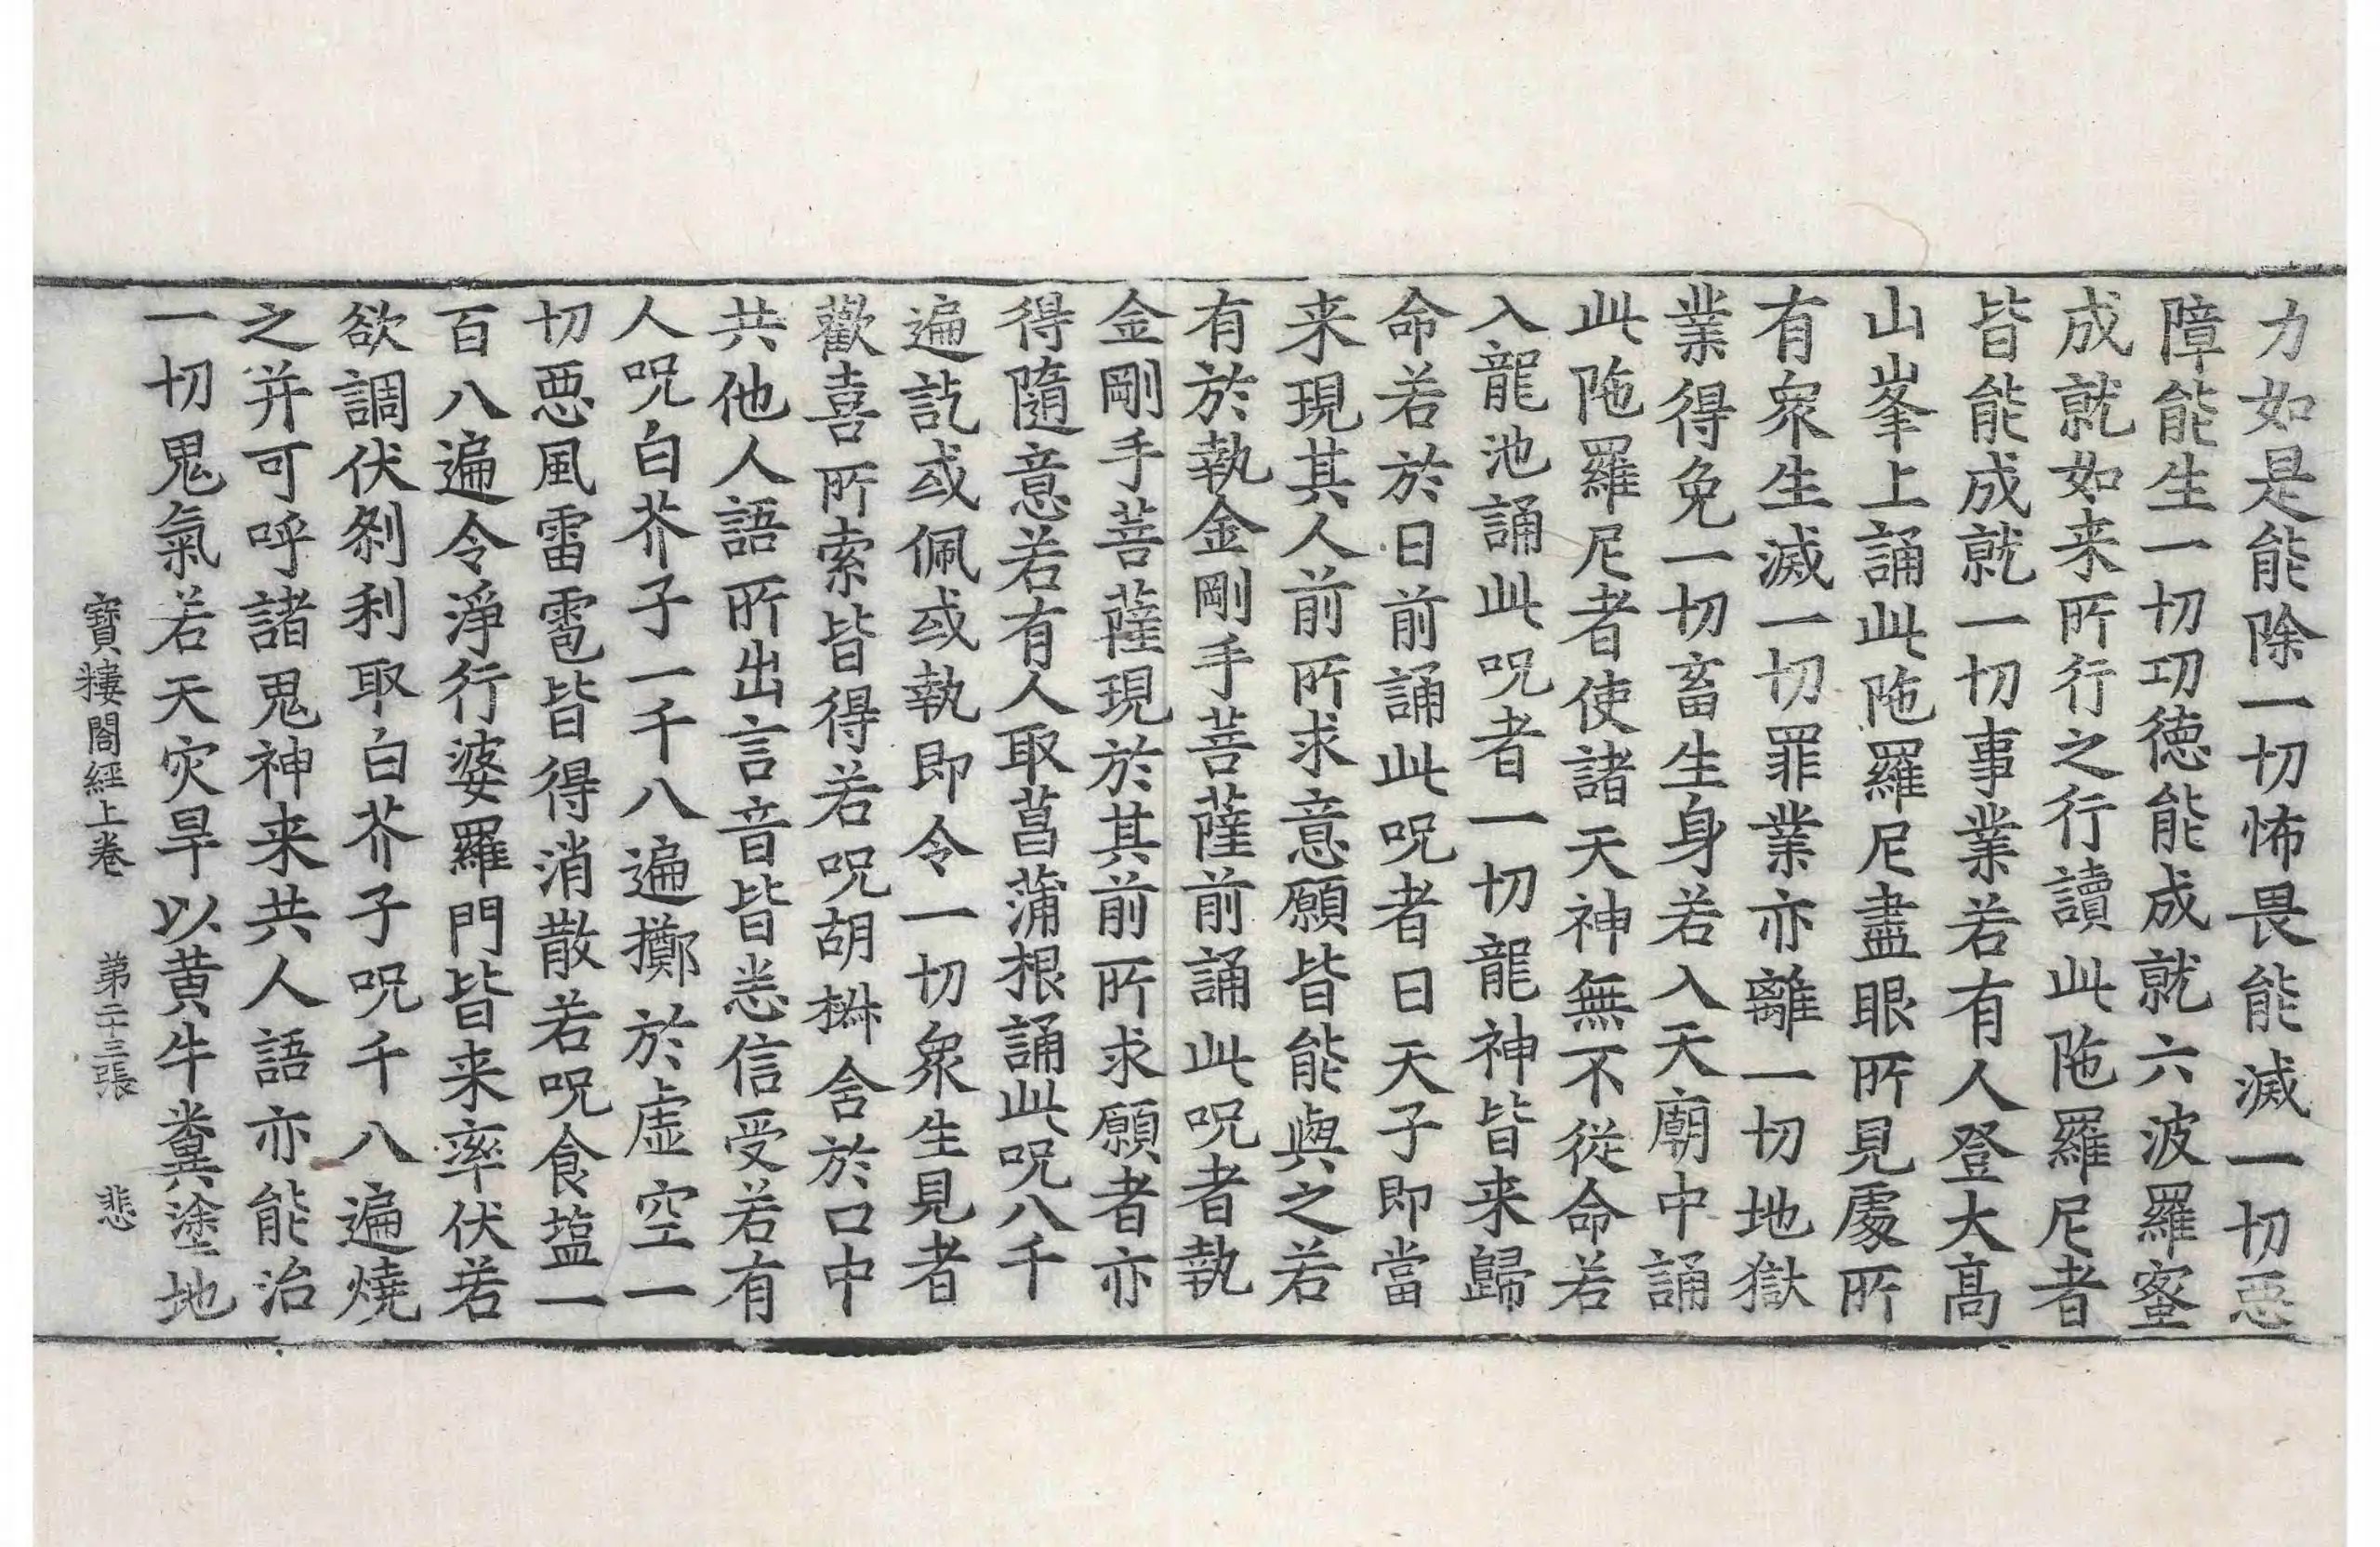 力如是能除一切怖畏能滅一切惡
障能生一切功德能成就六波羅蜜
成就如来所行之行讀此陁羅尼者
皆能成就一切事業若有人登大髙
山峯上誦此陁羅尼盡眼所見處所
有衆生滅一切罪業亦離一切地獄
業得免一切畜生身若入天廟中誦
此陁羅尼者使諸天神無不從命若
入龍池誦此呪者一切龍神皆来歸
命若於日前誦此呪者日天子即當
来現其人前所求意願皆能與之若
有於執金剛手菩薩前誦此呪者執
金剛手菩薩現於其前所求願者亦
得隨意若有人取菖蒲根誦此呪八千
遍訖或佩或執即令一切衆生見者
歡喜所索皆得若呪胡椒含於口中
共他人語所出言音皆悉信受若有
人呪白芥子一千八遍擲於虛空一
切惡風雷雹皆得消散若呪食塩一
百八遍令淨行婆羅門皆来率伏若
欲調伏剎利取白芥子呪千八遍燒
之并可呼諸鬼神来共人語亦能治
一切鬼氣若天灾旱以黄牛糞塗地
寶樓閣經上卷 第二十三張 悲